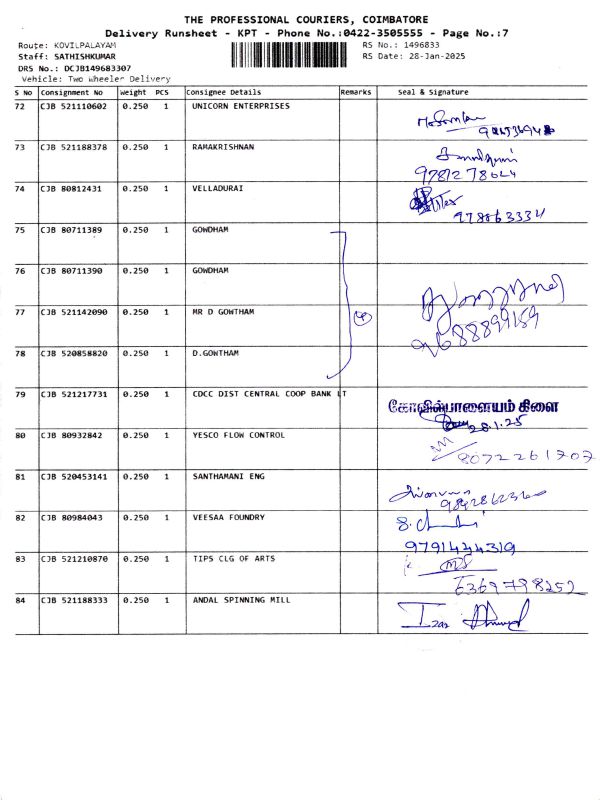 THE PROFESSIONAL COURIERS, COIMBATORE
Delivery Runsheet - KPT - Phone No.:0422-3505555 - Page No.:7
Route: KOVILPALAYAM RS No.: 1496833
Staff: SATHISHKUMAR RS Date: 28-Jan-2025
DRS No.: DCJB149683307
Vehicle: Two Wheeler Delivery
S No Consignment No Weight PCS Consignee Details Remarks Seal & Signature
72 CJB 521110602 0.250 1 UNICORN ENTERPRISES
73 CJB 521188378 0.250 1 RAMAKRISHNAN
9781278624
74 CJB 80812431 0.250 1 VELLADURAI
978863334
75 CJB 80711389 0.250 1 GOWDHAM
76 CJB 80711390 0.250 1 GOWDHAM
77 CJB 521142090 0.250 1 MR D GOWTHAM
4
78 CJB 520858820 0.250 1 D.GOWTHAM
79 CJB 521217731 0.250 1 CDCC DIST CENTRAL COOP BANK LT
கோவில்பாளையம் கிளை
28.1.25
80 CJB 80932842 0.250 1 YESCO FLOW CONTROL
8072261707
81 CJB 520453141 0.250 1 SANTHAMANI ENG
82 CJB 80984043 0.250 1 VEESAA FOUNDRY
9791444319
83 CJB 521210870 0.250 1 TIPS CLG OF ARTS
6369798252
84 CJB 521188333 0.250 1 ANDAL SPINNING MILL